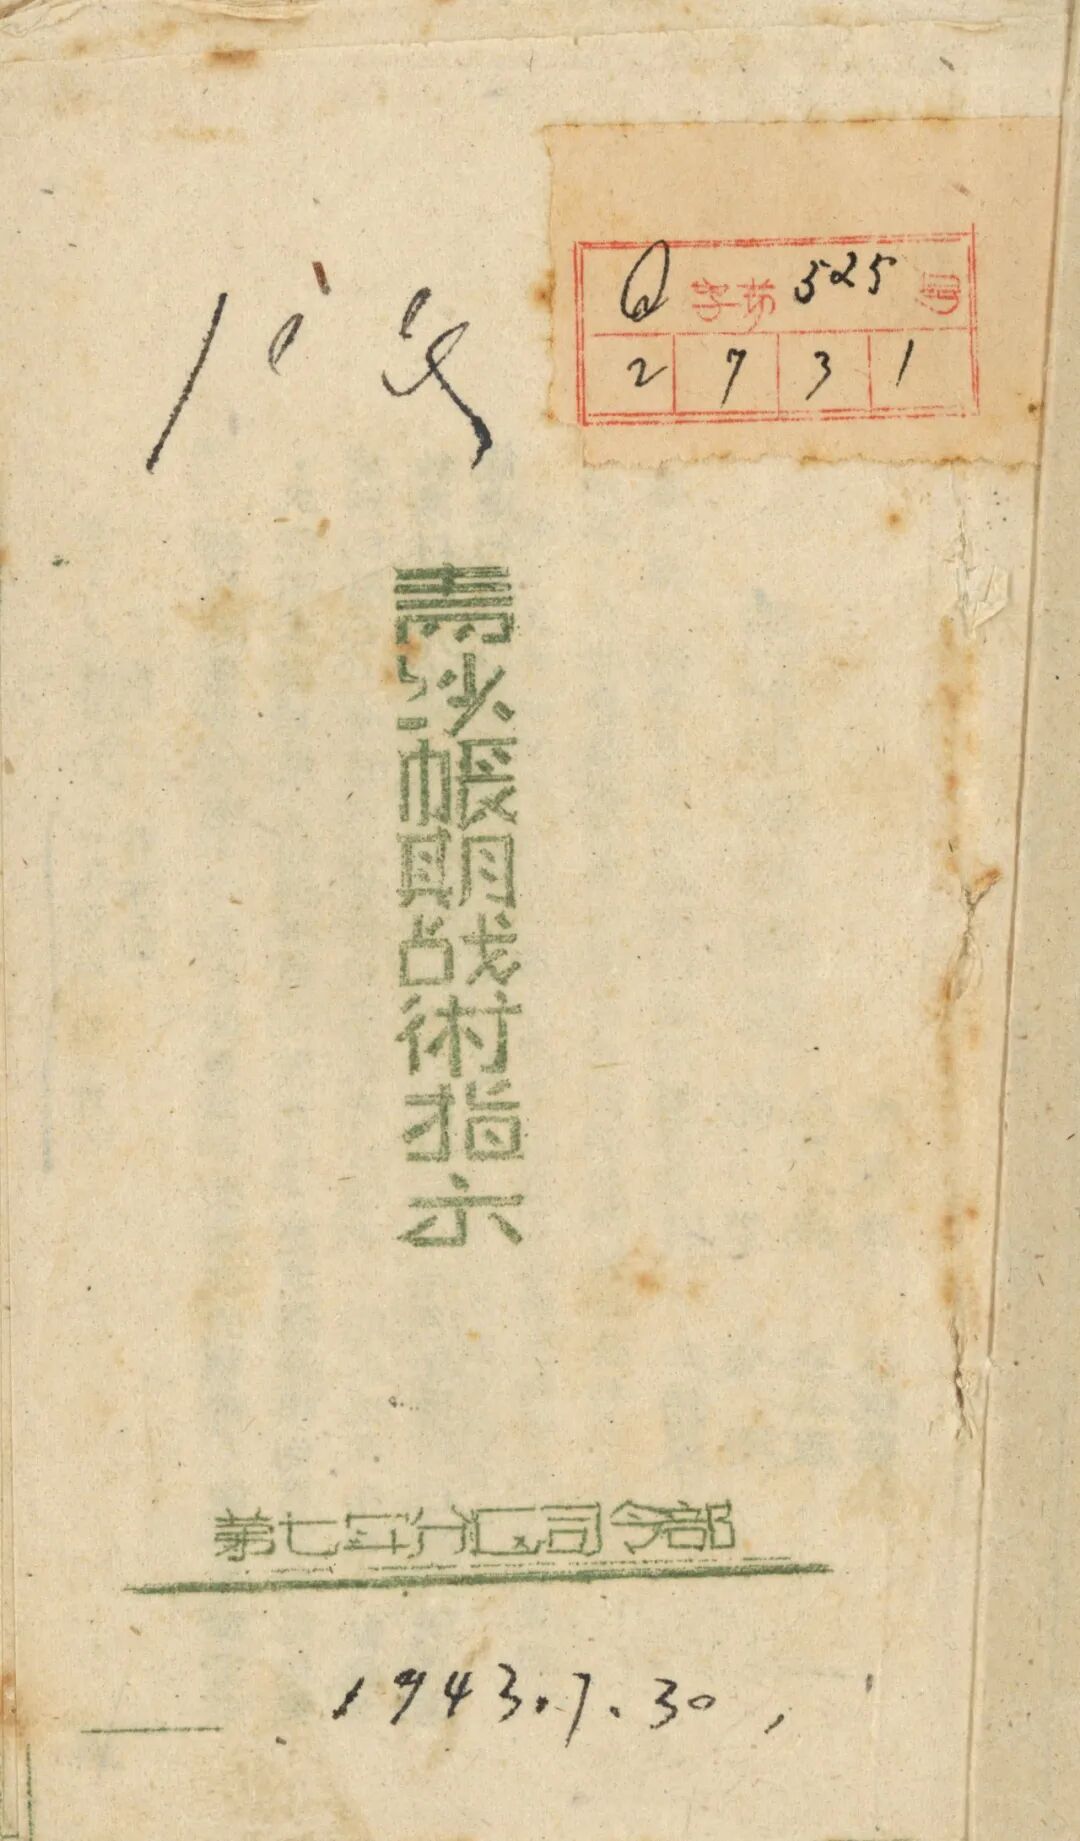 字第 525
2 7 3 1
青沙帳期战術指示
第七军分区司令部
1943.7.30.